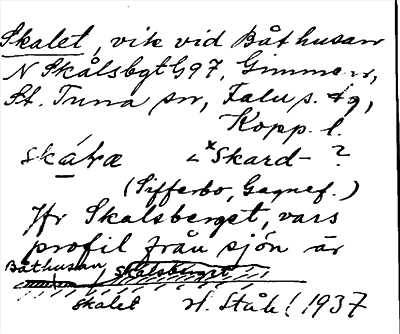 Skalet, vik vid Båthusan
N Skålsbgt 497, Gimmen,
St. Tuna sn, Falu s. dg,
Kopp. l.
skálæ < *Skard- ?
(Sifferbo, Gagnef.)
Jfr Skalsberget, vars
profil från sjön är
Båthusan Skålsberget
Skalet H. Ståhl 1937